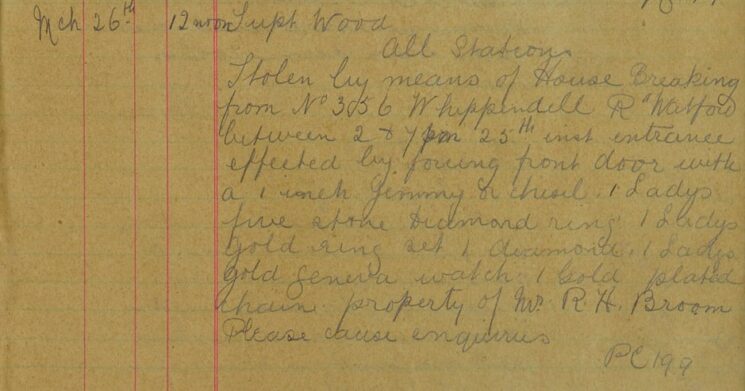 Mch 26th 12 noon Supt Wood
All Stations
Stolen by means of House Breaking
from No 356 Whippendell Rd Watford
between 2 & 7 pm 25th inst entrance
effected by forcing front door with
a 1 inch Jimmy or chisil. 1 Ladys
five stone Diamond ring 1 Ladys
Gold ring set 1 diamond. 1 Ladys
gold Geneva watch 1 Gold plated
chain property of Mr R. H. Broom
Please cause enquiries
PC 199